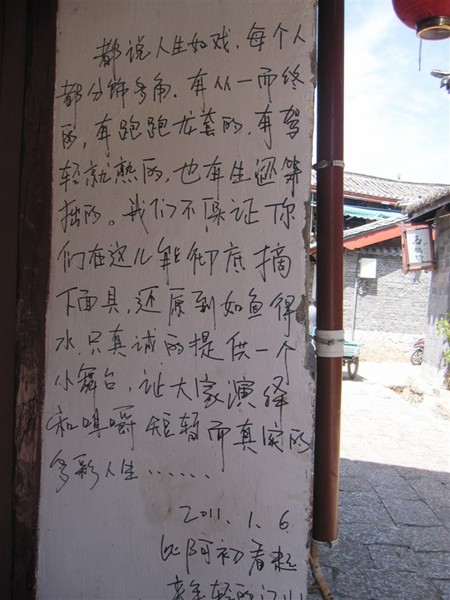 都说人生如戏，每个人
都分饰多角，有从一而终
的，有跑跑龙套的，有驾
轻就熟的，也有生涩笨
拙的。我们不保证你
们在这儿能彻底摘
下面具，还原到如鱼得
水，只真诚的提供一个
小舞台，让大家演绎
和咀嚼短暂而真实的
多彩人生……
2011.1.6
阿初看起